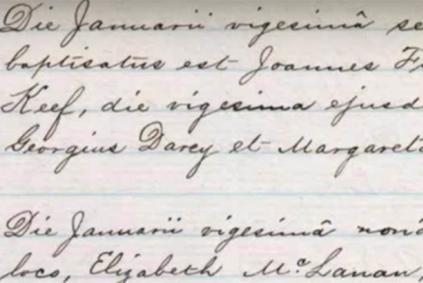 Die Januarii vigesimâ se
baptisatus est Joannes F
Keef, die vigesima ejusd
Georgius Darcy et Margaret
Die Januarii vigesimâ non
loco, Elizabeth McLanan,